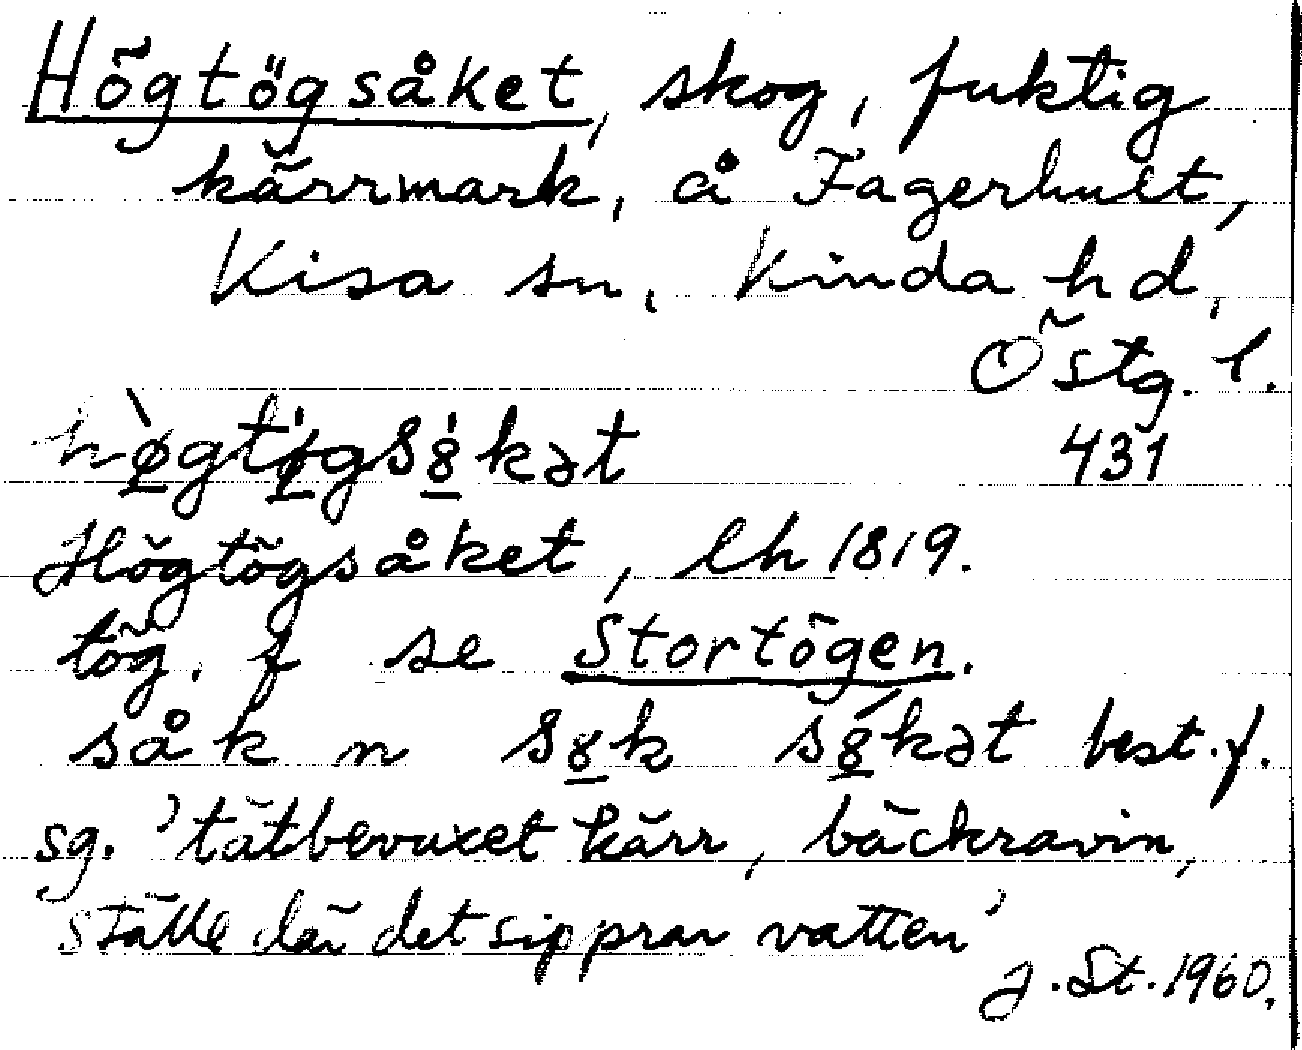 Högtögsåket, skog, fuktig
kärrmark, å Fagerhult,
Kisa sn, Kinda hd,
Östg. l.
431
hø̱̀gtø̱̍gs8̱̍kət
Högtögsåket, lh 1819.
tög, f se Stortögen.
såk n s8̱k s8̱́kət best. f.
sg. 'tätbevuxet kärr, bäckravin,
ställe där det sipprar vatten'
J. St. 1960.